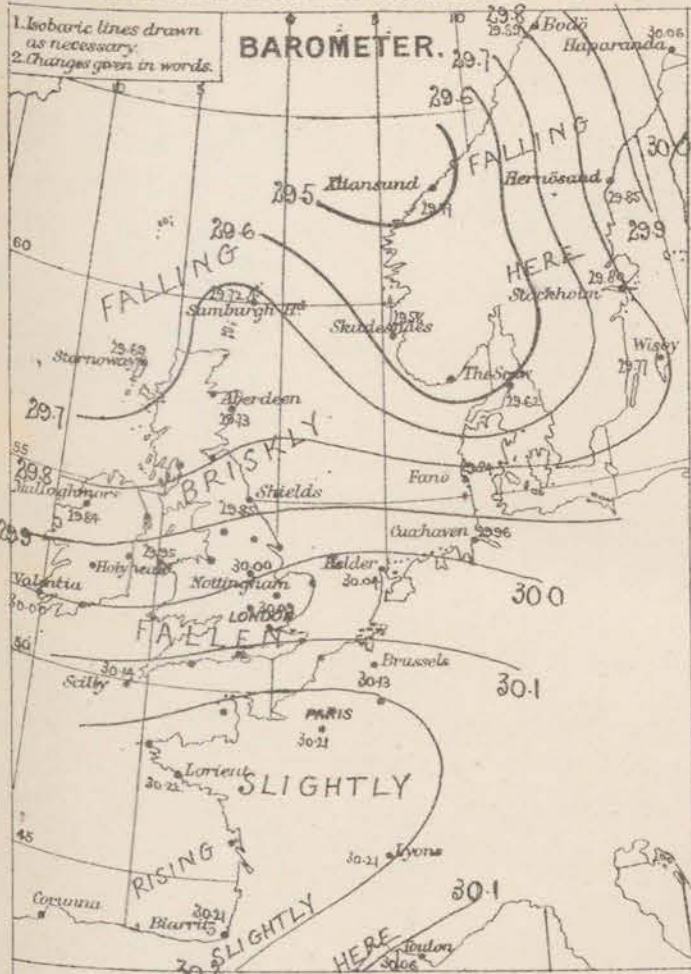 1. Isobaric lines drawn
as necessary.
2. Changes given in words.
BAROMETER.
10
5
0
5
10
29.8
29.89
Bodö
30.06
Haparanda
29.7
29.6
FALLING
30.0
Xtiansund
Hernösand
29.85
29.5
29.6
29.9
60
FALLING
HERE
29.80
Stockholm
29.72
Sumburgh Hd
Skudesnaes
Wisby
29.77
29.69
Stornoway
The Scaw
29.62
Aberdeen
29.73
29.7
55
BRISKLY
29.8
Mullaghmore
29.84
Shields
29.85
Fanö
29.84
29.9
Cuxhaven
29.96
29.95
Holyhead
30.00
Nottingham
Helder
30.04
Valentia
30.00
LONDON
30.0
FALLEN
50
Brussels
30.13
30.14
Scilly
30.1
PARIS
30.21
Lorient
30.22
SLIGHTLY
45
RISING
30.21
Lyons
Corunna
30.21
Biarritz
SLIGHTLY
HERE
30.1
Toulon
30.06